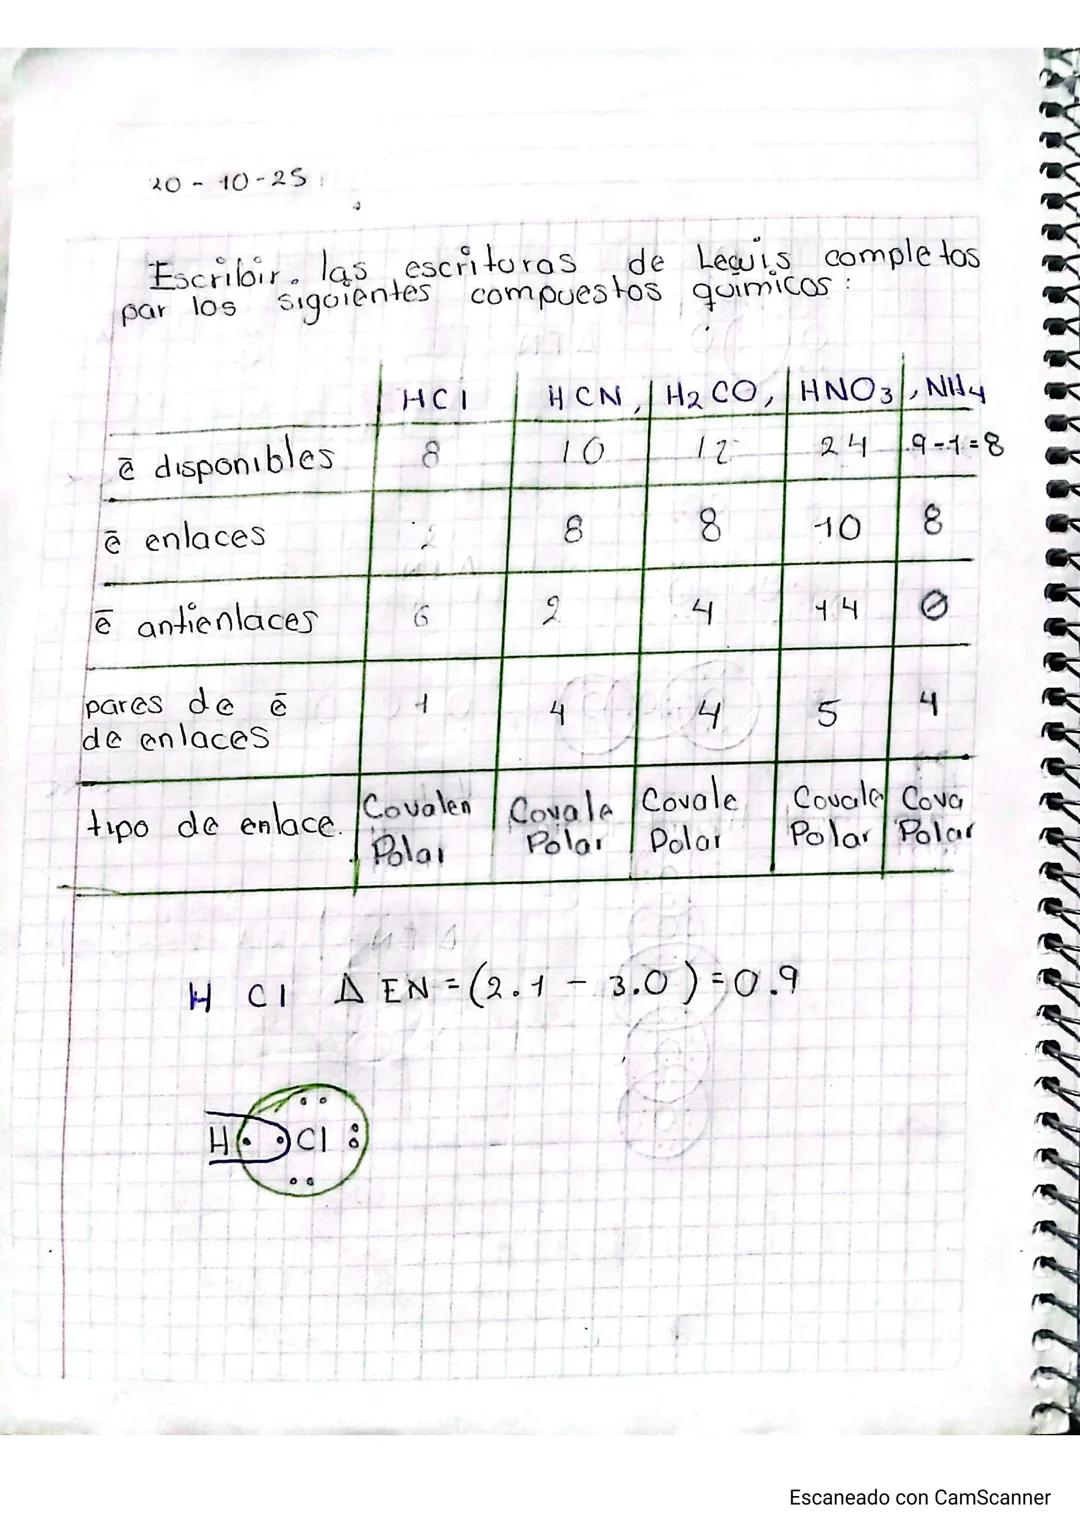 20 - 10-25
Escribir. las escrituras de Lewis completos
par los siguientes compuestos químicos:
HCl HCN, H2CO, HNO3, NH4
ē disponibles 8 10 12 24 9-1=8
ē enlaces 2 8 8 10 8
ē antienlaces 6 2 4 14 0
pares de ē 1 4 4 5 4
de enlaces
tipo de enlace. Covalen Covale Covale Covale Cova
Polar Polar Polar Polar Polar
H Cl Δ EN = (2.1 - 3.0) = 0.9
H Cl
Escaneado con CamScanner